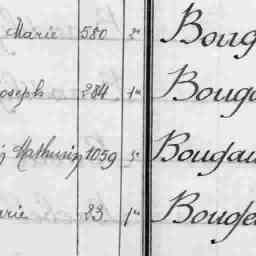 Marie 580 2e Boug
oseph 284 1e Bouga
Mathurin 1059 5e Bougau
arie 23 1e Bouge